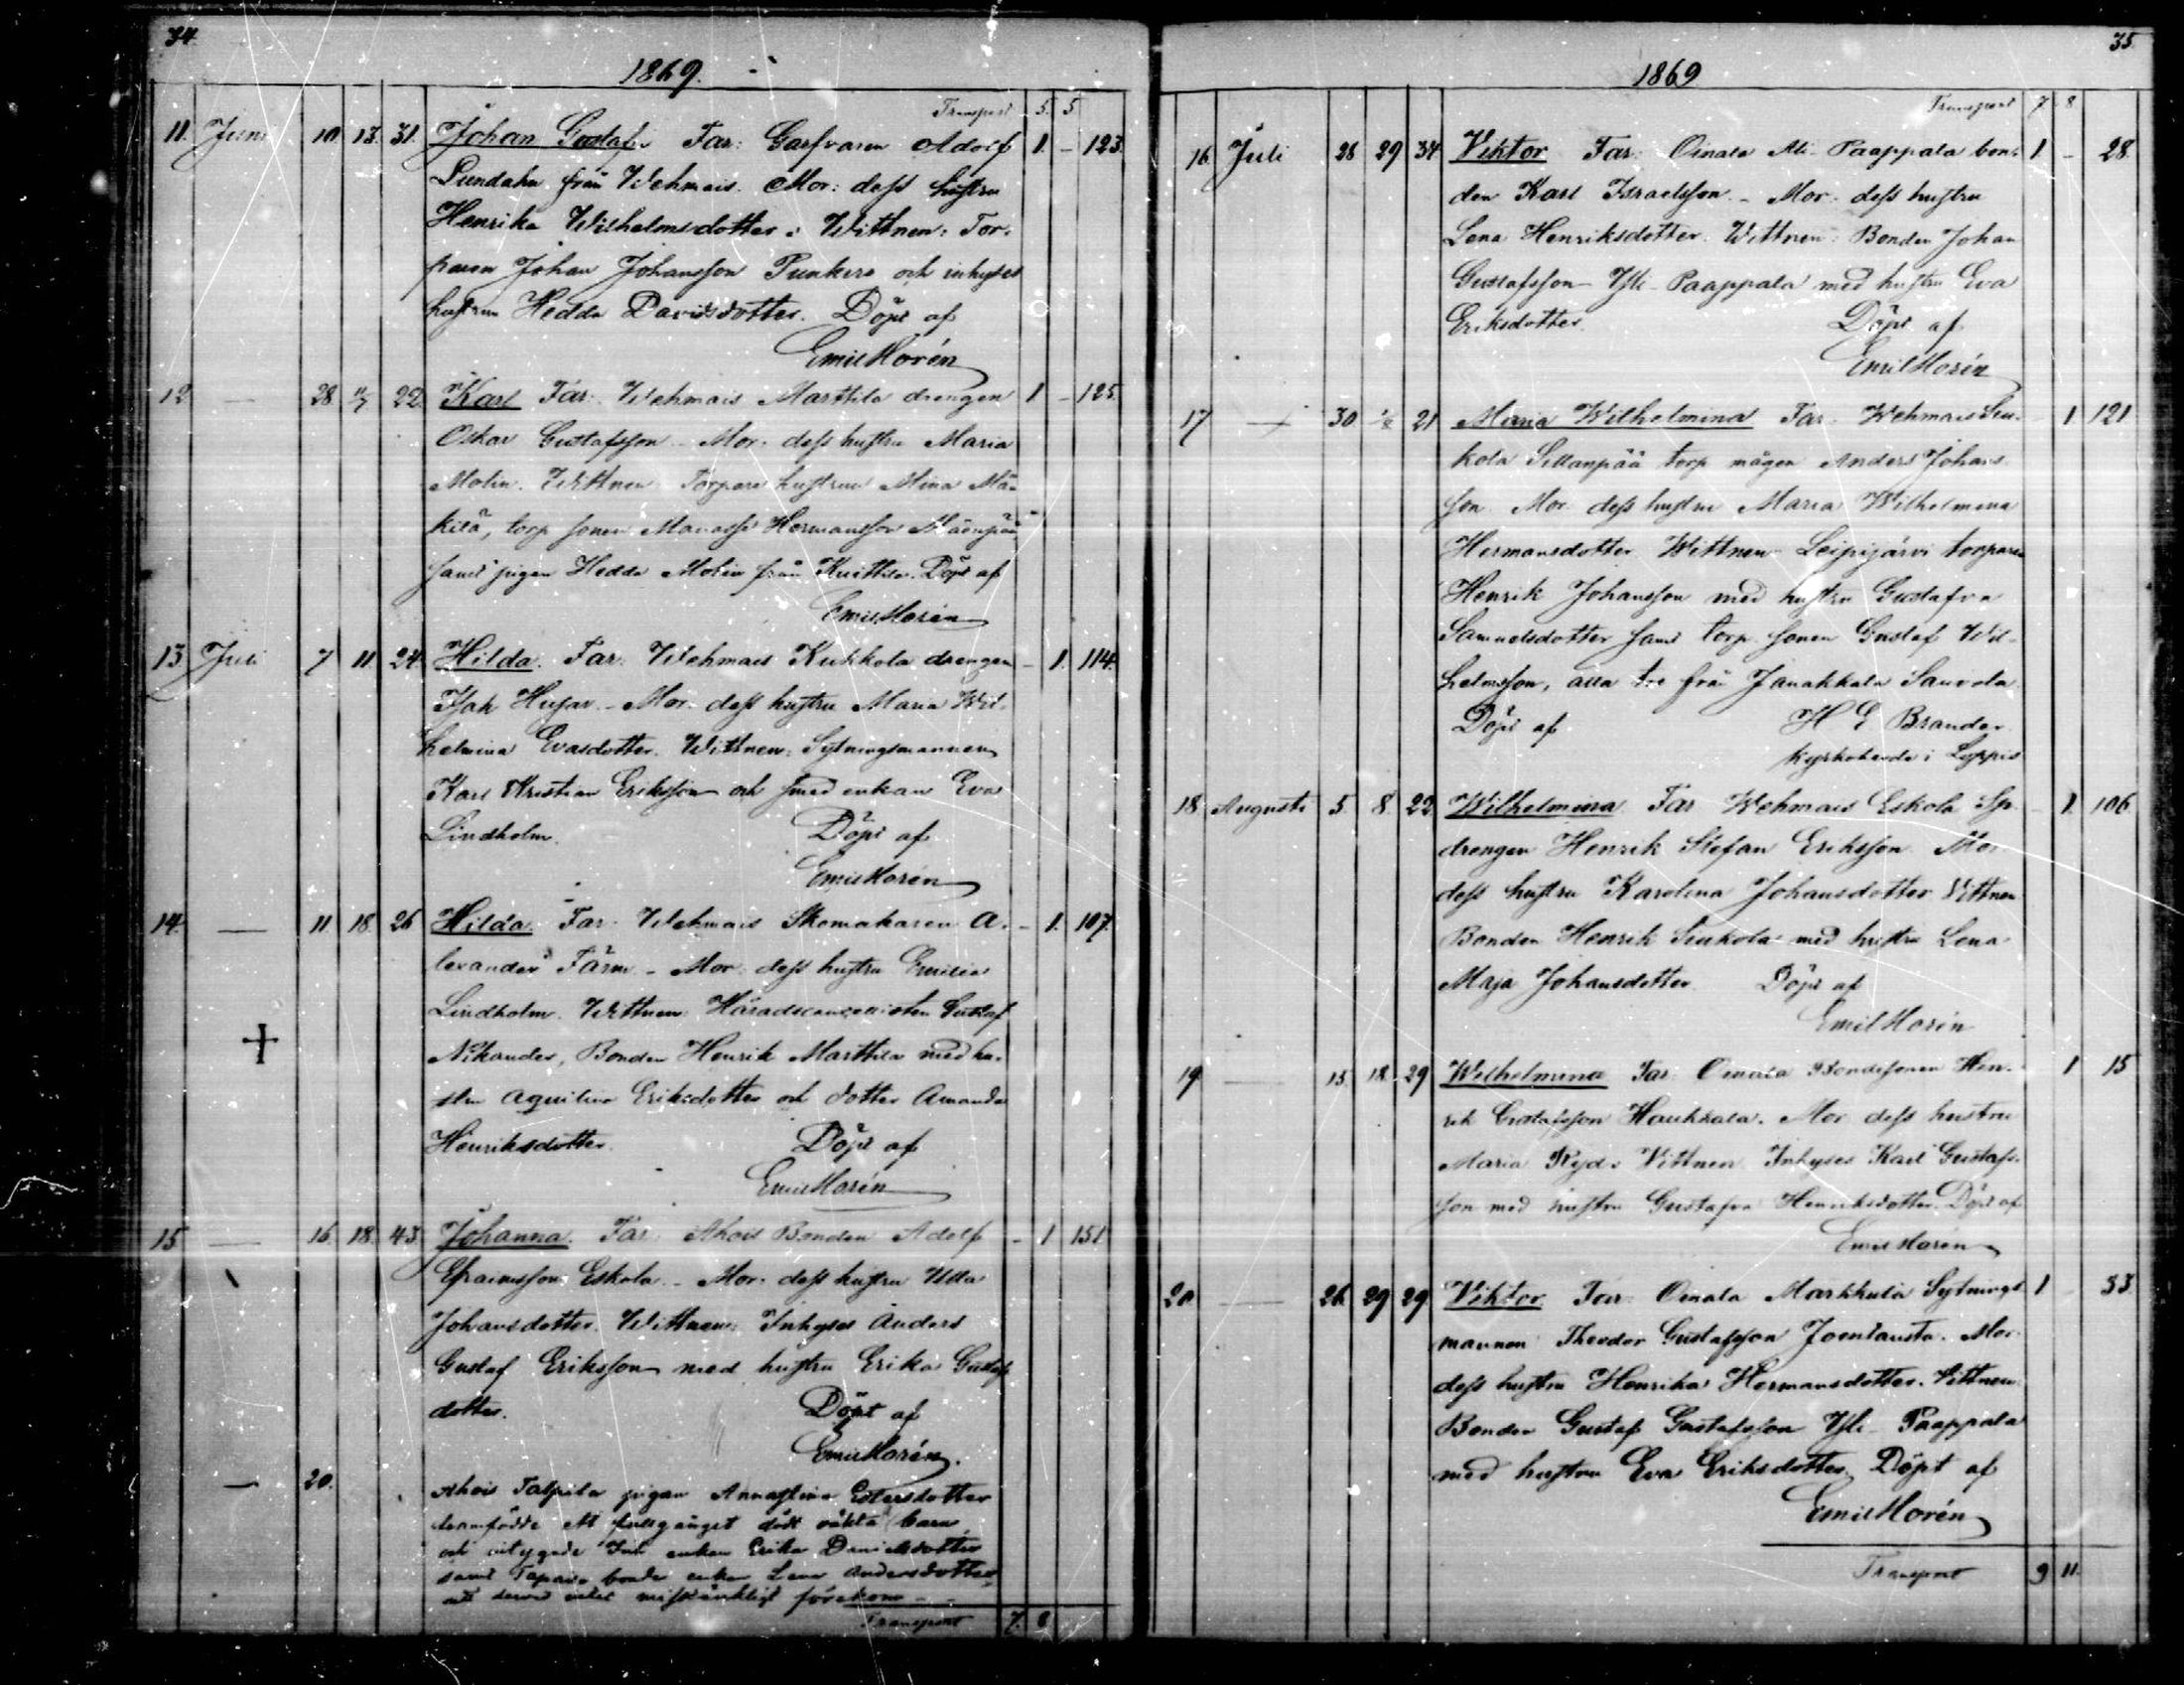 34.
1869.
Transport 5. 5
11. Juni 10. 13. 31. Johan Gustaf. Far: Garfvaren Adolf 1. – 123.
Lundahn från Wehmais. Mor: dess hustru
Henrika Wilhelmsdotter. Wittnen: Tor-
paren Johan Johansson Punkura och inhyses
hustrun Hedda Davidsdotter. Döpt af
Emil Morén
12 — 28. 22. Karl Far: Wehmais Marttila drengen 1 – 125.
Oskar Gustafsson – Mor: dess hustru Maria
Molin. Wittnen Torpare hustrun Mina Mä-
kilä, torp. sonen Manasse Hermansson Mäenpää
samt pigan Hedda Molin från Knittila. Döpt af
Emil Morén
13. Juli 7 11 24. Hilda. Far: Wehmais Kukkola drengen – 1. 114.
Isak Husar. – Mor. dess hustru Maria Wil-
helmina Evasdotter. Wittnen: Sytningsmannen
Karl Kristian Eriksson och smed enkan Eva
Lindholm. Döpt af
Emil Morén
14. — 11 18. 26 Hilda. Far: Wehmais Skomakaren A- – 1. 107.
lexander Färm. – Mor: dess hustru Emilia
Lindholm. Wittnen: Häradscancellisten Gustaf
Nikander, Bonden Henrik Marttila med hu-
stru Aqvilina Eriksdotter och dotter Amanda
Henriksdotter. Döpt af
Emil Morén
15 — 16. 18. 43. Johanna. Far: Ahois Bonden Adolf – 1 151
Efraimsson Eskola. – Mor: dess hustru Ulla
Johansdotter. Wittnen: Inhyses Anders
Gustaf Eriksson med hustru Erika Gustafs
dotter. Döpt af
Emil Morén.
— 20. Ahois Talpila pigan Annastina Estersdotter
framfödde ett fullgånget dödt oäkta barn,
och intygade Inh. enkan Erika Danielsdotter
samt Tapare bonde enkan Lena Andersdotter
att dervid intet misstänkligt förekom – –
Transport 7. 8
35.
1869
Transport 7 8
16. Juli 28 29 34 Viktor Far: Oinala Ali-Paappala bon- 1 – 28.
den Karl Israelsson. – Mor: dess hustru
Lena Henriksdotter. Wittnen: Bonden Johan
Gustafsson Yli-Paappala med hustru Eva
Eriksdotter. Döpt af
Emil Morén
17 — 30. 21 Maria Wilhelmina Far. Wehmais Siu- 1 121
kola Sillanpää torp mågen Anders Johans-
son Mor. dess hustru Maria Wilhelmina
Hermansdotter Wittnen Leipijärvi torparen
Henrik Johansson med hustru Gustafva
Samuelsdotter samt torp. sonen Gustaf Wil-
helmsson, alla tre från Janakkala Sauvola.
Döpt af H G Brander
kyrkoherde i Loppis
18. Augusti 5. 8. 22. Wilhelmina Far Wehmais Eskola Sp. – 1. 106.
drengen Henrik Stefan Eriksson Mor
dess hustru Karolina Johansdotter Vittnen
Bonden Henrik Siukola med hustru Lena
Maja Johansdotter Döpt af
Emil Morén
19. — 15. 18. 29 Wilhelmina Far: Oinala Bondesonen Hen- 1 15
rik Gustafsson Haukkala. Mor dess hustru
Maria Ryd. Vittnen Inhyses Karl Gustafs-
son med hustru Gustafva Henriksdotter. Döpt af
Emil Morén
20. — 26. 29 29 Viktor. Far: Oinala Markkula Sytnings 1 33.
mannen Theodor Gustafsson Joentausta. Mor
dess hustru Henrika Hermansdotter. Vittnen:
Bonden Gustaf Gustafsson Yli-Paappala
med hustru Eva Eriksdotter. Döpt af
Emil Morén
Transport 9 11.